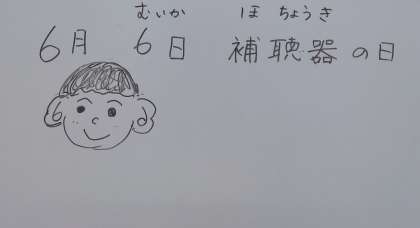 むいか ほ ちょうき
6月 6日 補聴器の日